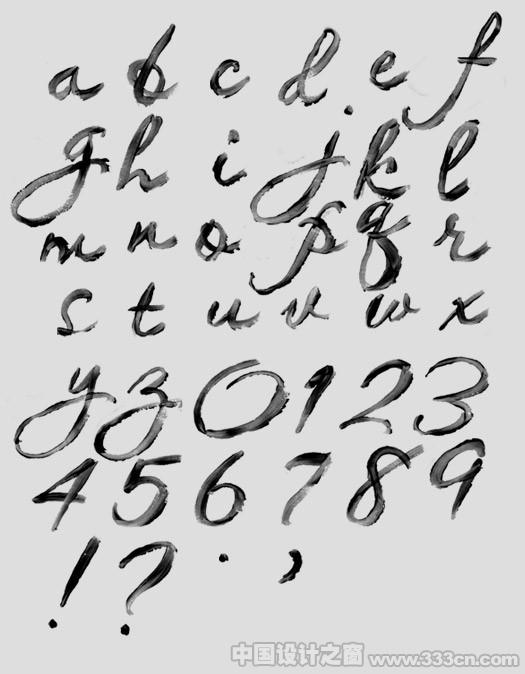 a b c d e f
g h i j k l
m n o p q r
s t u v w x
y z 0 1 2 3
4 5 6 7 8 9
! ? . ,
中国设计之窗 www.333cn.com